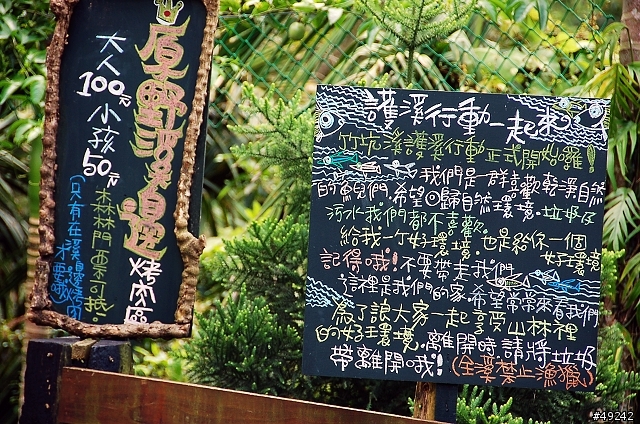 原野溪邊
烤肉區
大人
100元
小孩
50元
森林門票可抵。
(只有在溪邊烤肉
才要繳)
護溪行動一起來!
竹坑溪護溪行動正式開始囉!
我們是一群喜歡乾淨自然
的魚兒們.希望回歸自然環境.垃圾
污水我們都不喜歡.
給我一个好環境.也是給你一個
好環境
記得哦!不要帶走我們
這裡是我們的家.希望常常來看我們
為了讓大家一起享受山林裡
的好環境.離開時請將垃圾
帶離開哦!(全溪禁止漁獵)
#49242